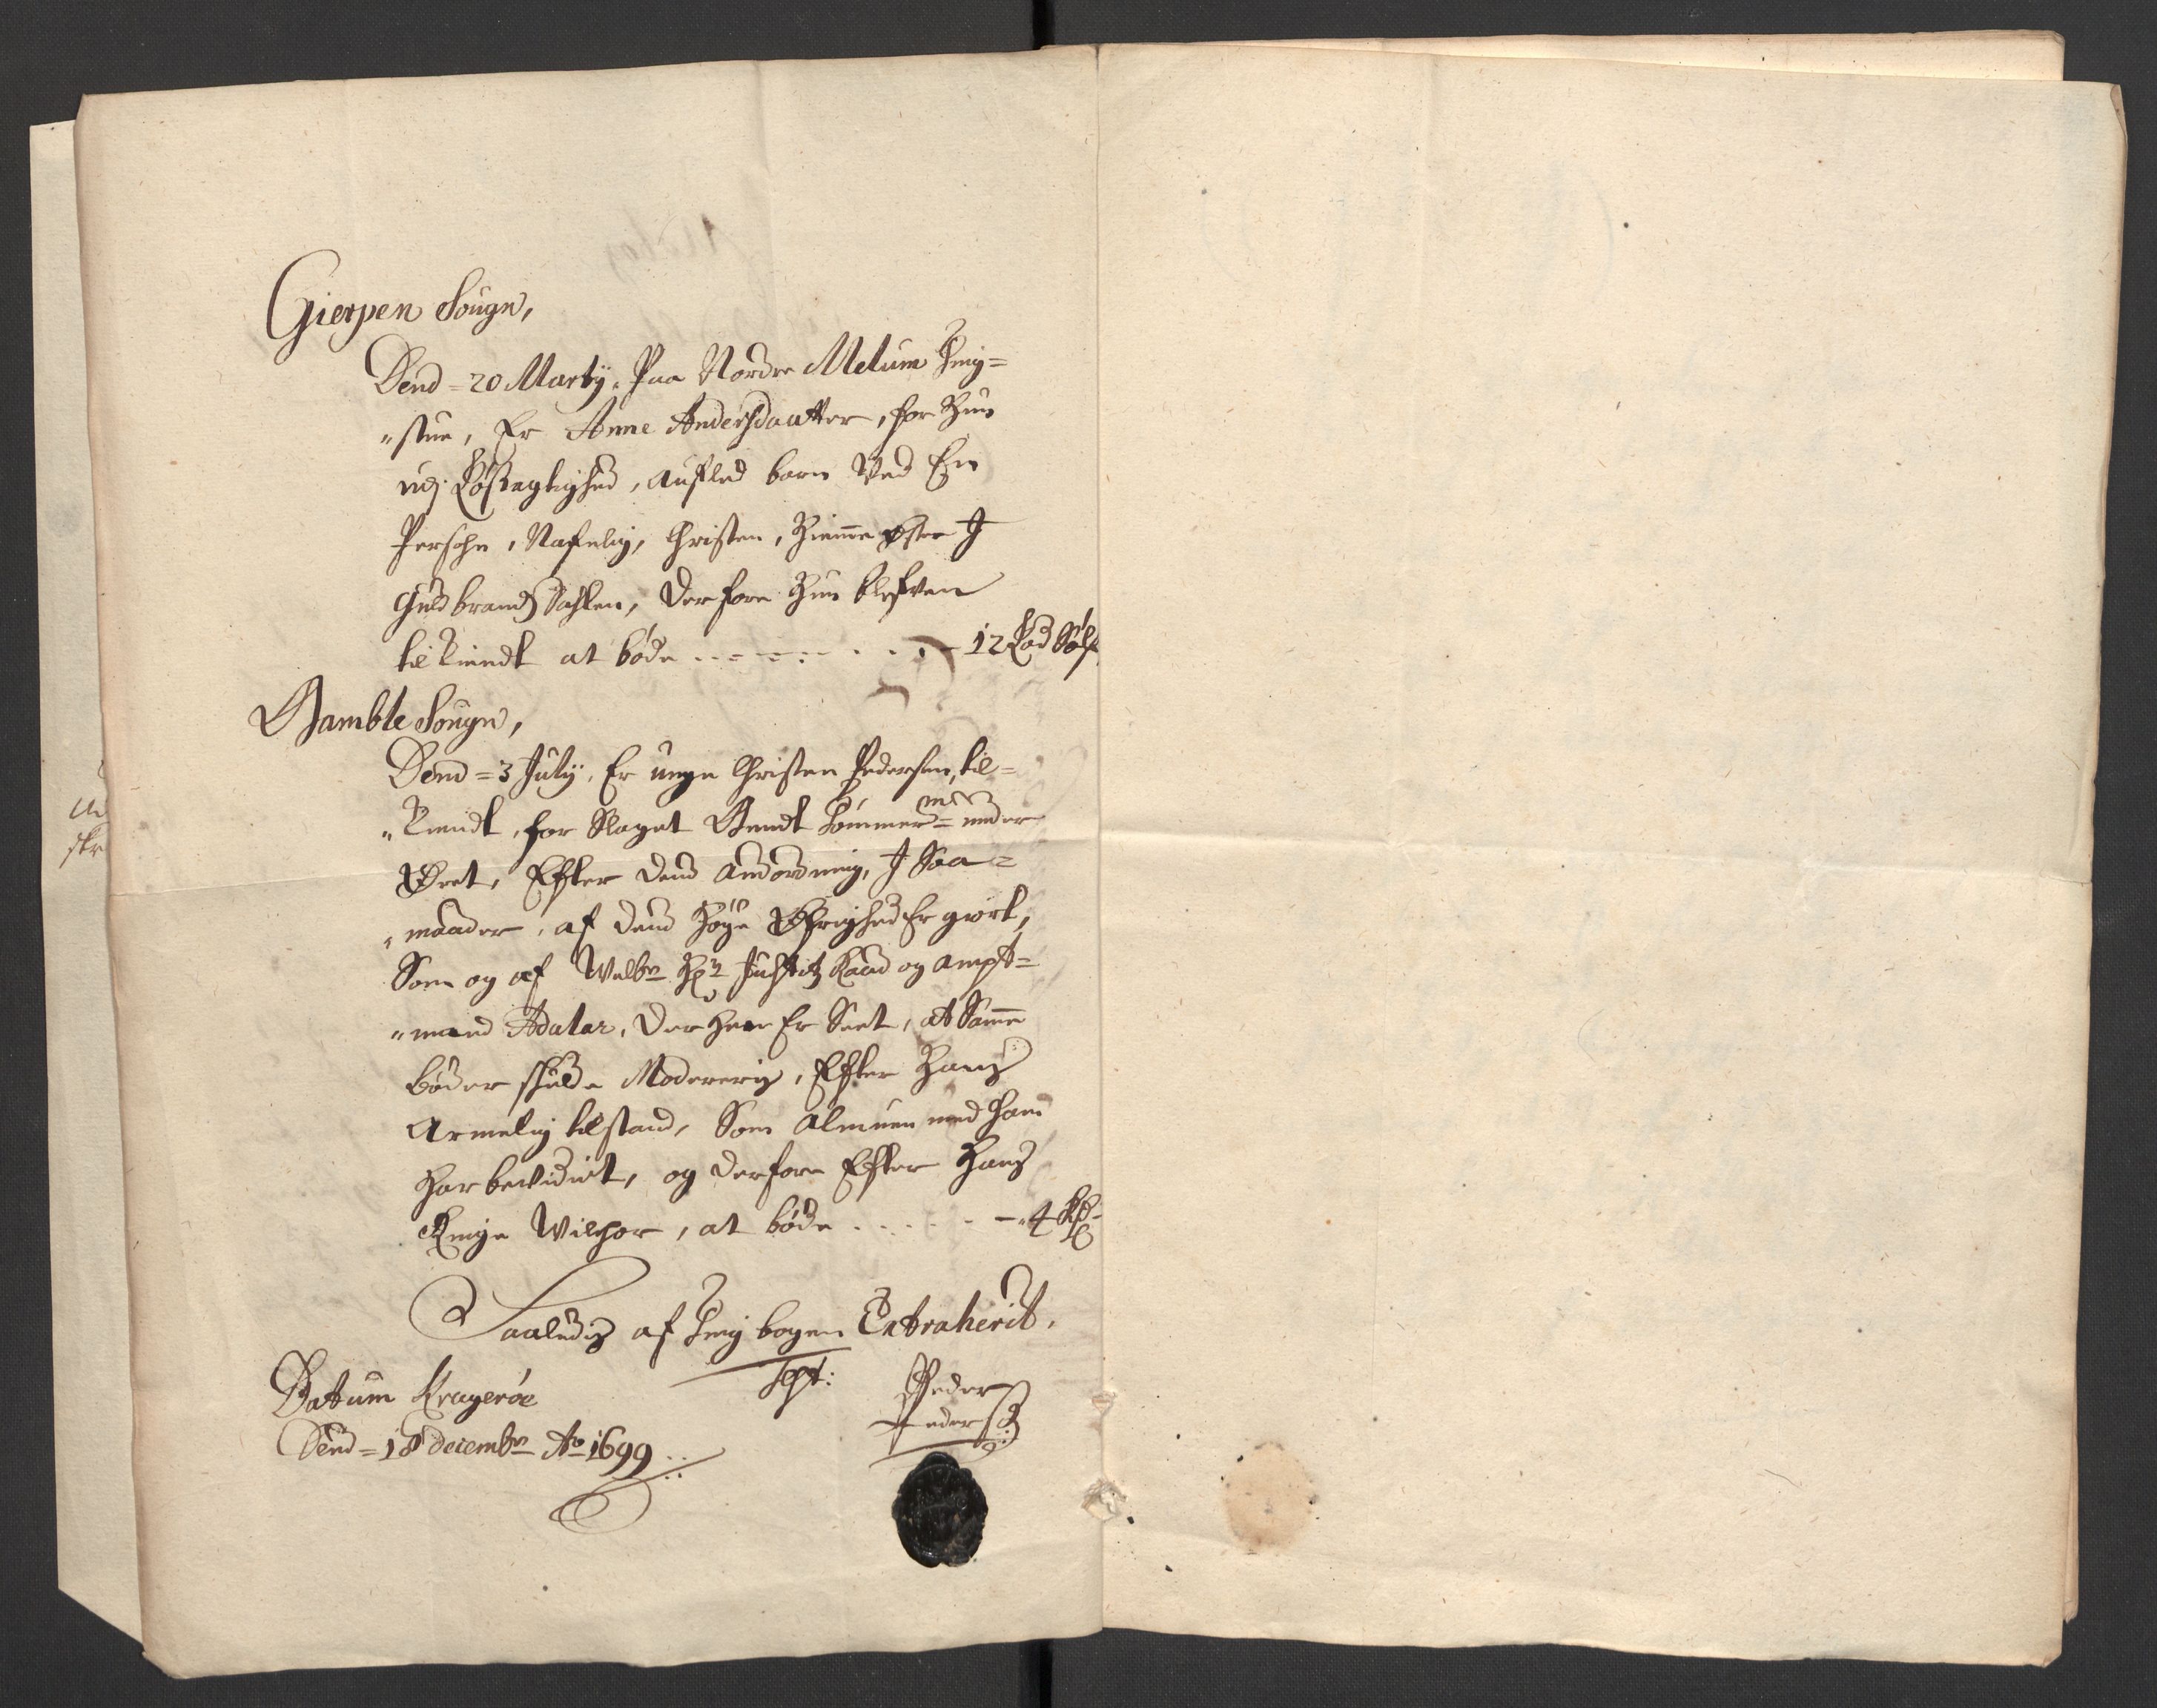 Gierpen Sougn,
Dend = 20 Martÿ. Paa Nordre Melum Ting=
"stue, Er Anne Andersdaatter, for Hun
udj Løsagtighed, aufled barn Ved En
Persohn, Nafnlig, Christen, Hiemme Øster J
Guldbrands Dahlen, derfore Hun blefven
tilkiendt at bøde - - - - - - - 12 Lod Sølf
Bamble Sougn,
Dend = 3 Julÿ. Er unge Christen Pedersen, til=
"kiendt, for Slaget Bendt Tømmermand under
Øret, Efter dend anordning, J Saa=
"maader, af dend Høye Øfrighed Er giort,
Som og af Welb: Hr: Justitz Raad og ampt=
"mand Adalar, der hen Er Seet, at Samme
bøder skulde Modereris, Efter Hans
armelig tilstand, Som almuen med ham
Har bevidnet, og derfore Efter Hans
Ringe Wilchor, at bøde . . . . . - 4 Rdr
Saaledis af Ting bogen Extraherit,
Datum Kragerøe
Dend = 18 decembr Ao 1699
Test:
Peder
Peders: